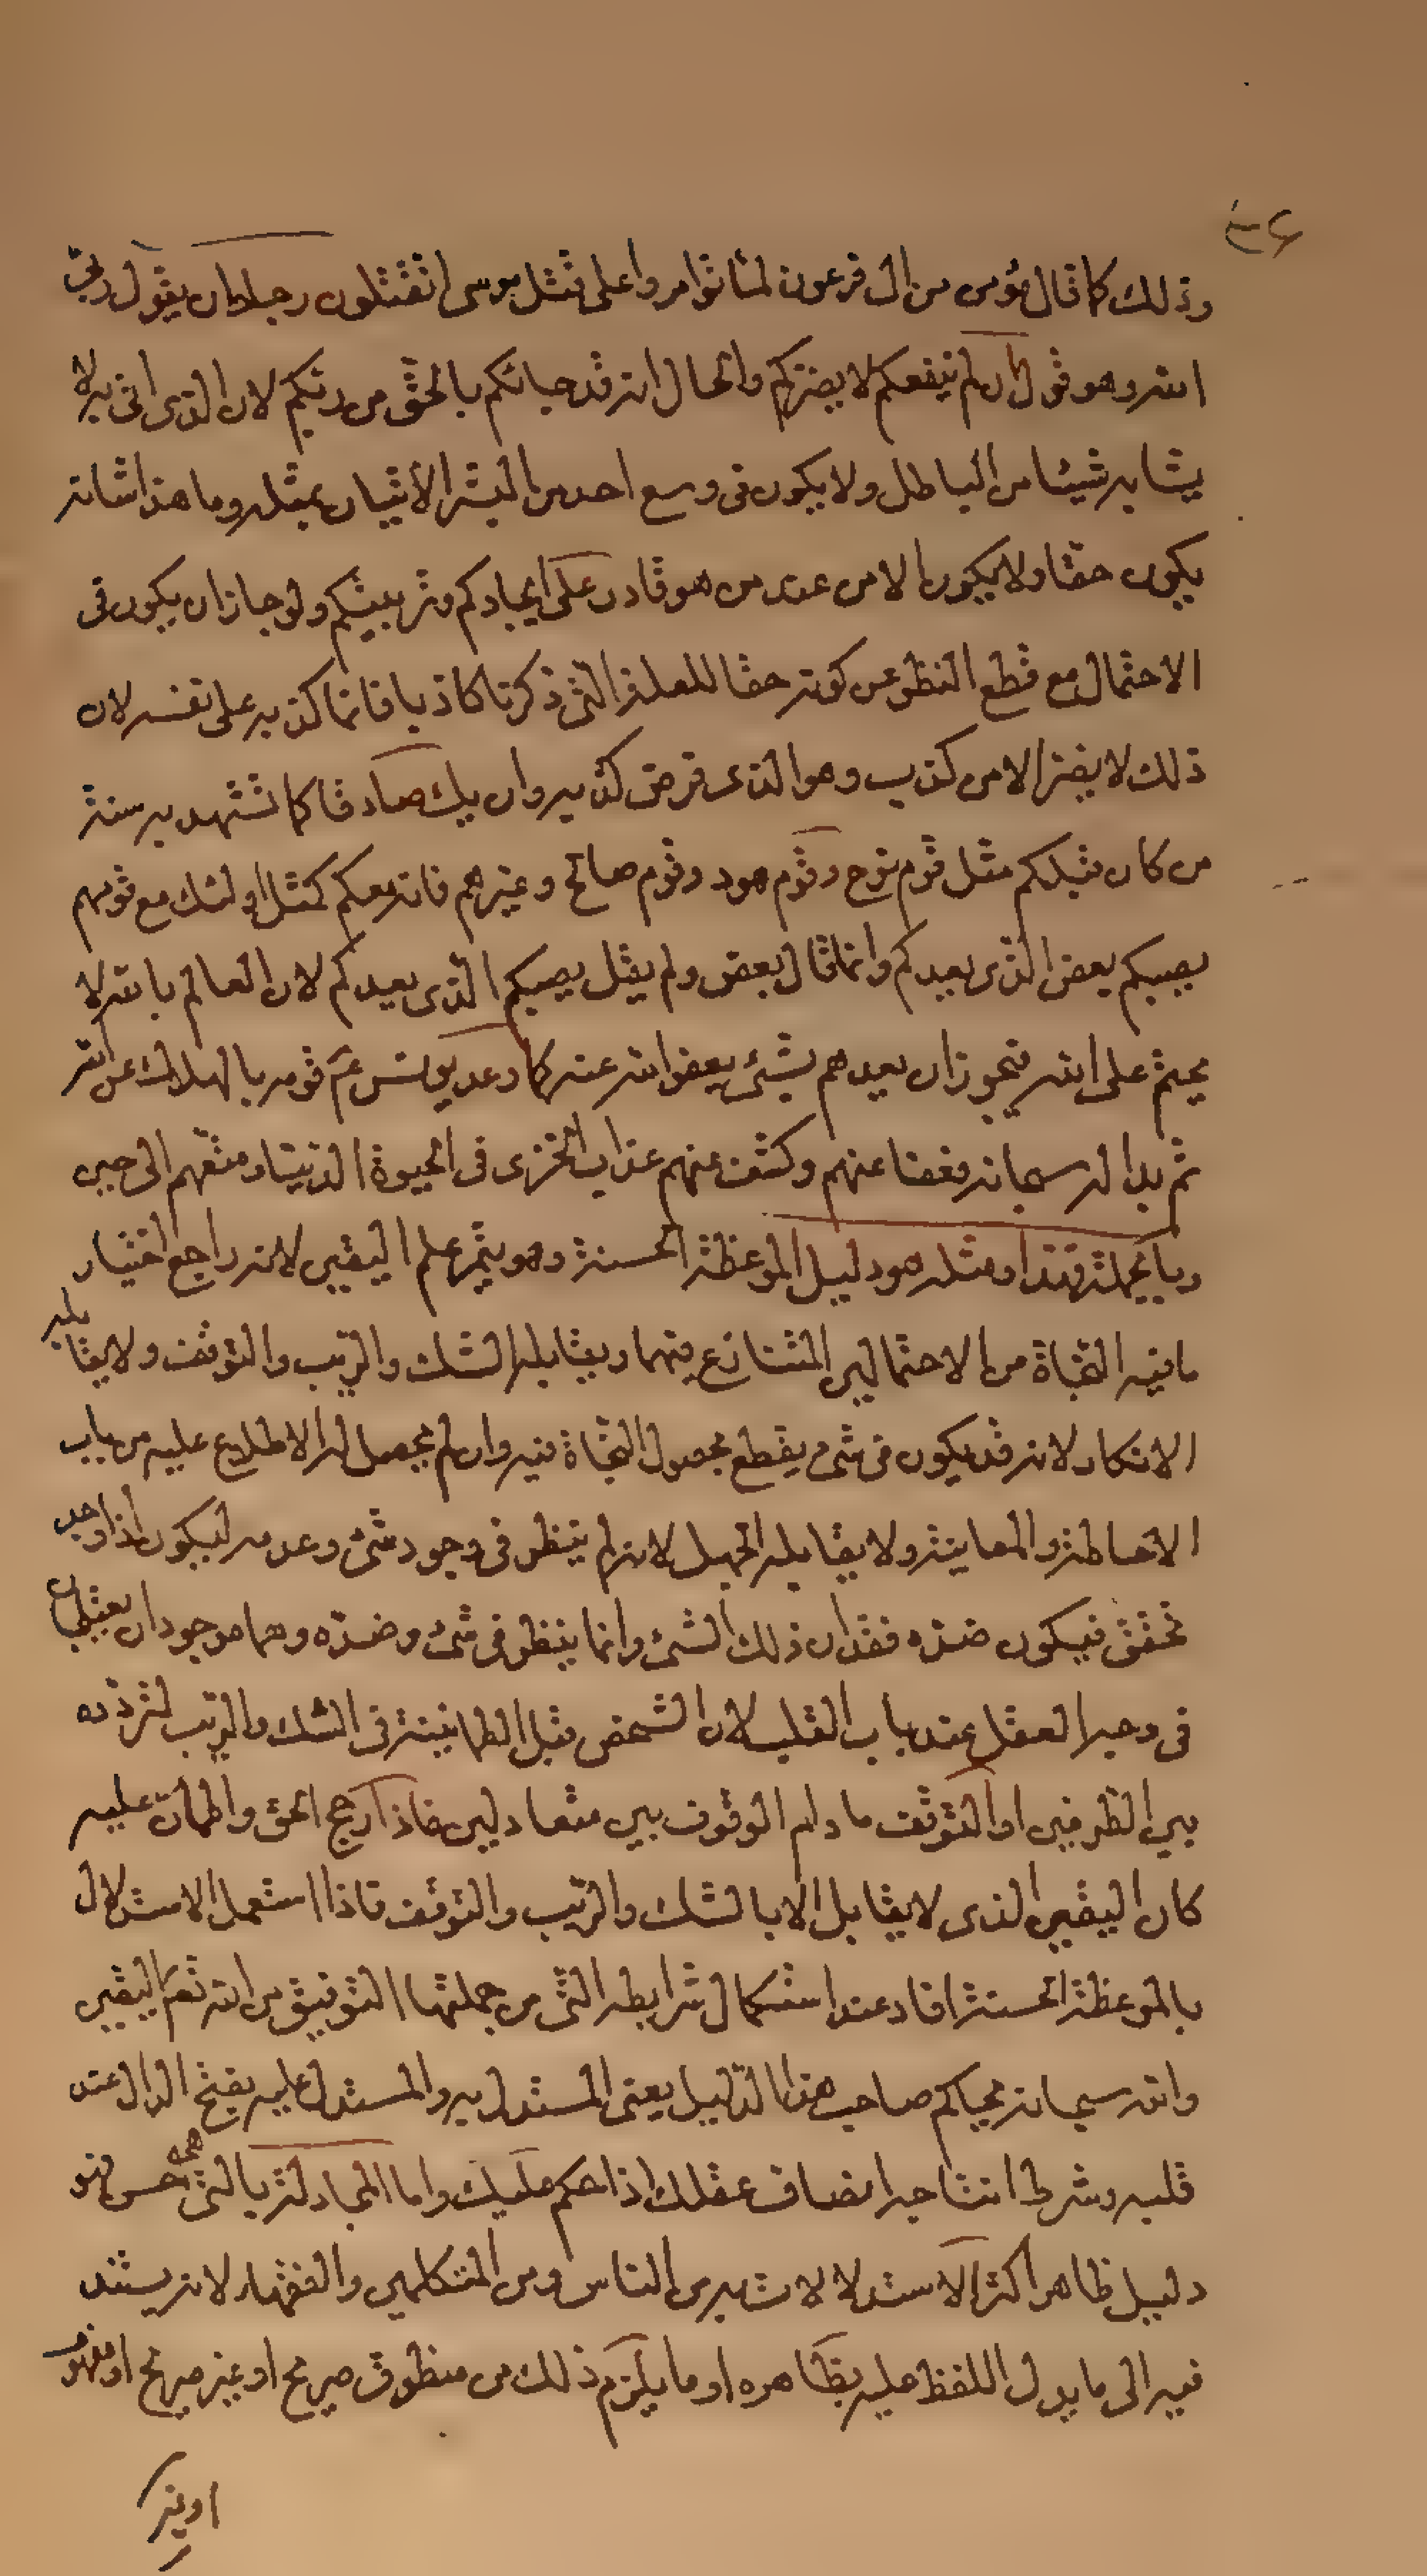 وذلك كما قال مؤمن من ال فرعون لما توامروا على قتل موسى اتقتلون رجلا ان يقول ربى
الله وهو قول ان لم ينفعكم لا يضركم والحال انه قد جائكم بالحق من ربكم لان الذى اتى به لا
يشابه شيئا من الباطل ولا يكون فى وسع احد من البشر الاتيان بمثله وما هذا شانه
يكون حقا ولا يكون الا من عند من هو قادر على ايجادكم وتربيتكم ولو جاز ان يكون فى
الاحتمال مع قطع النظر عن كونه حقا للعلة التى ذكرنا كاذبا فانما كذبه على نفسه لان
ذلك لا يضر الا من كذب وهو الذى فرض كذبه وان يك صادقا كما تشهد به سنة
من كان قبلكم مثل قوم نوح وقوم هود وقوم صالح وغيرهم فانه معكم كمثل اولئك مع قومهم
يصبكم بعض الذى يعدكم وانما قال بعض ولم يقل يصبكم الذى يعدكم لان العالم بالله لا
يحتم على الله فيجوز ان يعدهم بشئ يعفو الله عنه كما وعد يونس ع قومه بالهلاك عن الله
ثم بدا له سبحانه فعفا عنهم وكشف عنهم عذاب الخزى فى الحيوة الدنيا ومتعهم الى حين
وبالجملة فهذا ومثله هو دليل الموعظة الحسنة وهو يثمر علم اليقين لانه راجع اختيار
ما فيه النجاة من الاحتمالين المتنازع فيهما ويقابله الشك والريب والتوقف ولا يقابله
الانكار لانه قد يكون فى شئ يقطع بحصول النجاة فيه وان لم يحصل له الاطلاع عليه من باب
الاحاطة والمعاينة ولا يقابله الجهل لانه لم ينظر فى وجود شئ وعدمه ليكون اذا وجد
تحقق فيكون ضده فقدان ذلك الشئ وانما ينظر فى شئ وضده وهما موجودان
فى وجه العقل عند باب القلب لان الشخص قبل الطمانينة فى الشك والريب لتردده
بين الطرفين او التوقف ما دام الوقوف بين متعادلين فاذا رجح الحق واطمان عليه
كان اليقين الذى لا يقابل الا بالشك والريب والتوقف فاذا استعمل الاستدلال
بالموعظة الحسنة افاد عند استكمال شرايطه التى من جملتها التوفيق من الله تع اليقين
والله سبحانه يحاكم صاحب هذا الدليل يعنى المستدل به والمستدل عليه بفتح الدال عند
قلبه وشرط انتاجه انصاف عقلك اذا حكم عليك واما المجادلة بالتى هى احسن فهو
دليل ظاهر اكثر الاستدلالات به من الناس ومن المتكلمين والفقهاء لانه يستند
فيه الى ما يدل اللفظ عليه بظاهره او ما يلزم ذلك من منطوق صريح او غير صريح او مفهوم